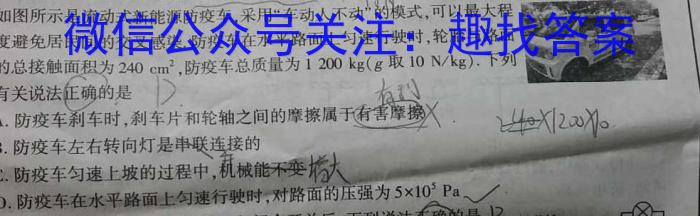 如图所示是流动式新能源防疫车,采用“车动人不动”的模式,可以最大程
微信公众号关注:趣找答案
度避免居民的交叉感染,防疫车在水平路面上匀速行驶时,轮胎与路面
的总接触面积为 240 cm²,防疫车总质量为 1 200 kg(g 取 10 N/kg). 下列
有关说法正确的是
D
有利
A. 防疫车刹车时,刹车片和轮轴之间的摩擦属于有害摩擦
B. 防疫车左右转向灯是串联连接的
并
C. 防疫车匀速上坡的过程中,机械能不变
增大
D. 防疫车在水平路面上匀速行驶时,对路面的压强为 5×10⁵ Pa